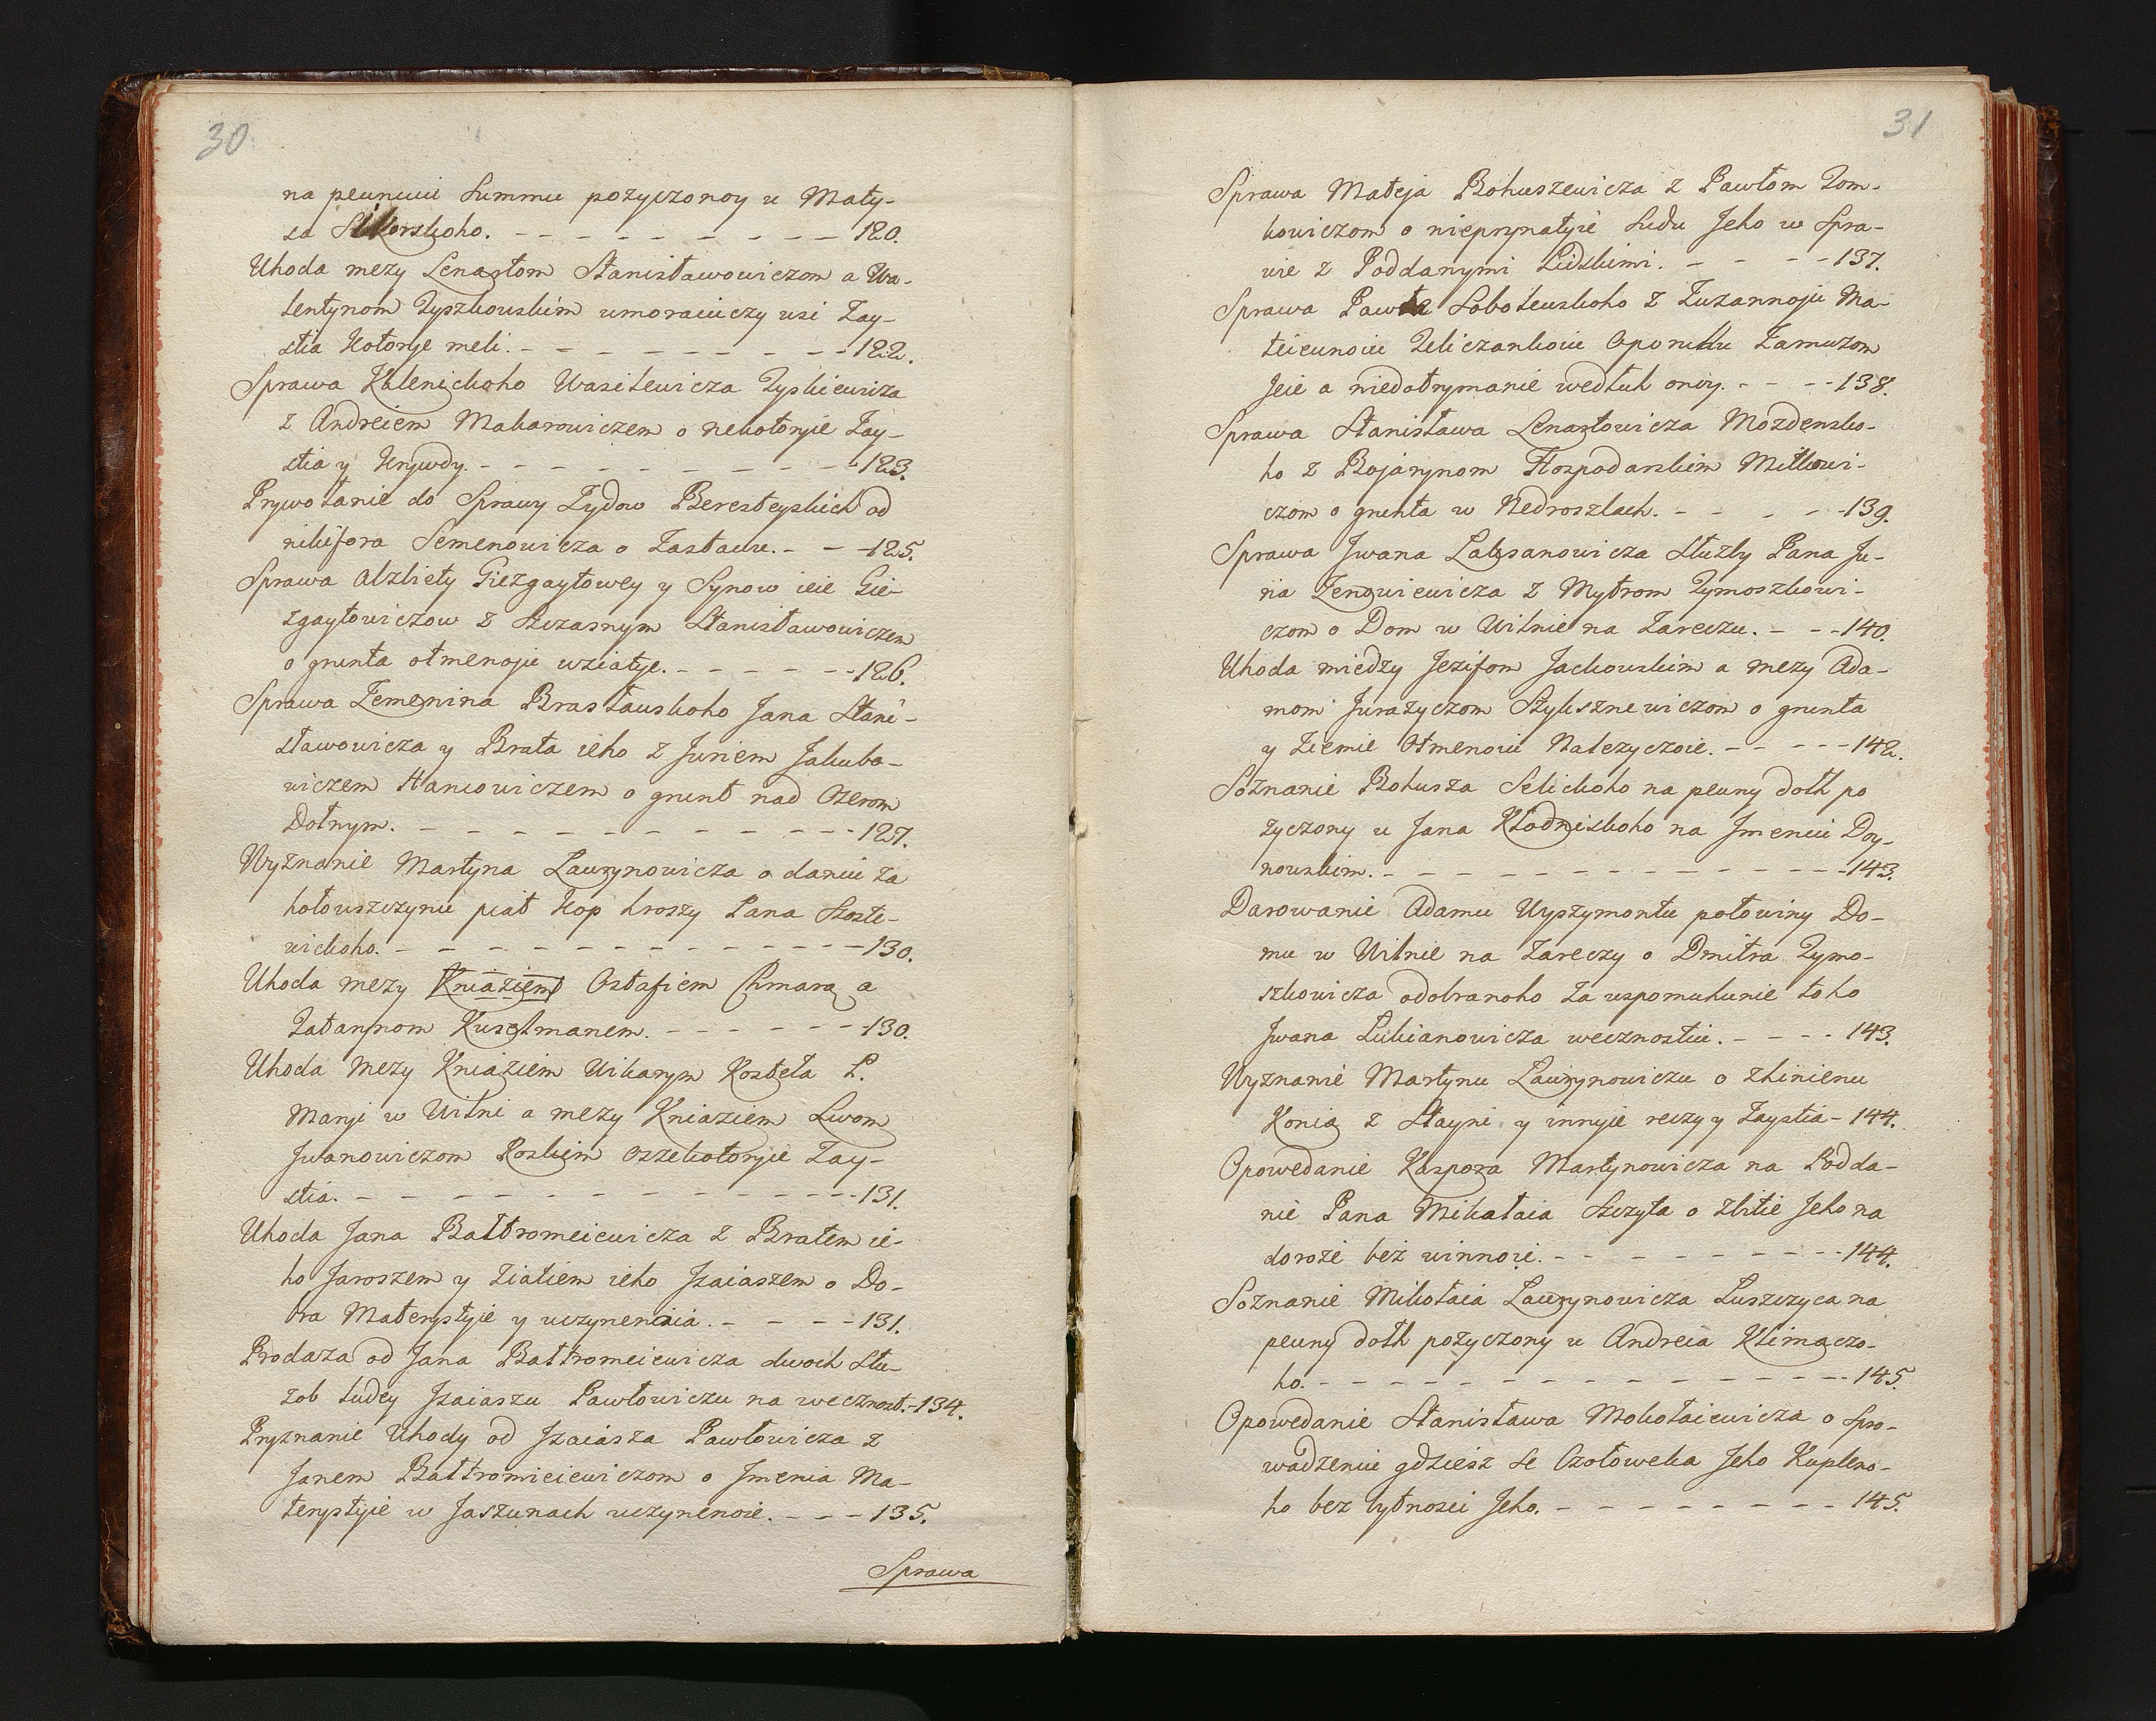 30
na pewnuiu Summu pozyczonoy u Maty-
sa Sikorskoho. - - - - - - - - - 120.
Uhoda mezy Lenartom Stanisławowiczom a Wa-
lentynom Tyszkowskim umoraiuczy usi Zay-
stia Kotorye meli. - - - - - - - - - 122.
Sprawa Khlenickoho Wasilewicza Tyskiewicza
z Andreiem Makarowiczem o nekotoryie Zay-
stia y Krywdy. - - - - - - - - - - 123.
Prywołanie do Sprawy Zydow Beresteyskich od
nikifora Semenowicza o Zastawu. - - - 125.
Sprawa Alzbiety Giezgaytowey y Synow ieie Gie-
zgaytowiczow z Szczasnym Stanisławowiczem
o grunta otmenoju wziatye. - - - - - - 126.
Sprawa Zemenina Brasławskoho Jana Stani-
sławowicza y Brata ieho z Juriem Jakubo-
wiczem Hancowiczem o grunt nad Ozerom
Dołnym. - - - - - - - - - - - - 127.
Wyznanie Martyna Lawrynowicza o daniu za
hołowszczynu piat Kop hroszy Pana Szoste-
wickoho. - - - - - - - - - - - - 130.
Uhoda mezy Kniaziem Ostafiem Chmara a
Tatarynom Kuselmanem. - - - - - - 130.
Uhoda mezy Kniaziem Wikarym Kosteła P.
Maryi w Wilni a mezy Kniaziem Lwom
Jwanowiczom Roskim oszekotoryie Zay-
stia. - - - - - - - - - - - - - 131.
Uhoda Jana Bałtromeiewicza z Bratem ie-
ho Jaroszem y Ziatiem ieho Jzaiaszem o Do-
bra Materystyie y uczynenaia. - - - - 131.
Prodaza od Jana Bałtromeiewicza dwoch słu-
zob ludey Jzaiaszu Pawłowiczu na wecznost. - 134.
Pryznanie Uhody od Jzaiasza Pawłowicza z
Janem Bałtromieiewiczom o Jmenia Ma-
terystyie w Jaszunach uczynenoie. - - - 135.
Sprawa
31
Sprawa Mateja Bohuszewicza z Pawłom Tom-
kowiczom o nieprynatyie Sudu Jeho w Spra-
wie z Poddanymi Lidzkimi. - - - - 137.
Sprawa Pawła Sobolewskoho z Zuzannoju Ma-
teiewnoiu Zeliczankoiu Oporuku Zamuzom
Jeie a niedotrymanie wedłuh onoy. - - - - 138.
Sprawa Stanisława Lenartowicza Mozdensko-
ho z Bojarynom Hospodarskim Mitkowi-
czom o grunta w Nedroszlach. - - - - 139.
Sprawa Jwana Laksanowicza Służby Pana Ju-
ria Zenowiewicza z Mytrom Tymoszkowi-
czom o Dom w Wilnie na Zareczu. - - - 140.
Uhoda miedzy Jezifom Jackowskim a mezy Ada-
mom Jurazyczom Szyleszne wiczom o grunta
y Ziemie Otmenoiu Nalezyczoie. - - - - - 142.
Soznanie Bohusza Selickoho na pewny dołh po
zyczony u Jana Kłodniskoho na Jmeniu Doy-
nowskim. - - - - - - - - - - - - 143.
Darowanie Adamu Wyszymontu połowiny Do-
mu w Wilnie na Zareczy o Dmitra Tymo-
szkowicza odobranoho za wspomuhunie toho
Jwana Lukianowicza wecznostiu. - - - - 143.
Wyznanie Martynu Lawrynowiczu o zhinienu
Konia z Stayni y innyie reczy y Zaystia - 144.
Opowedanie Kaspora Martynowicza na Podda-
nie Pana Mikołaia Szczyta o zbitie Jeho na
doroze bez winnoie. - - - - - - - - 144.
Soznanie Mikołaia Lawrynowicza Łuszczyca na
pewny dołh pozyczony u Andreia Klimaczo-
ho. - - - - - - - - - - - - - - 145.
Opowedanie Stanisława Mokołaiewicza o spro-
wadzeniu gdziesz se Czołoweka Jeho Kupleno-
ho bez bytnosci Jeho. - - - - - - - - 145.